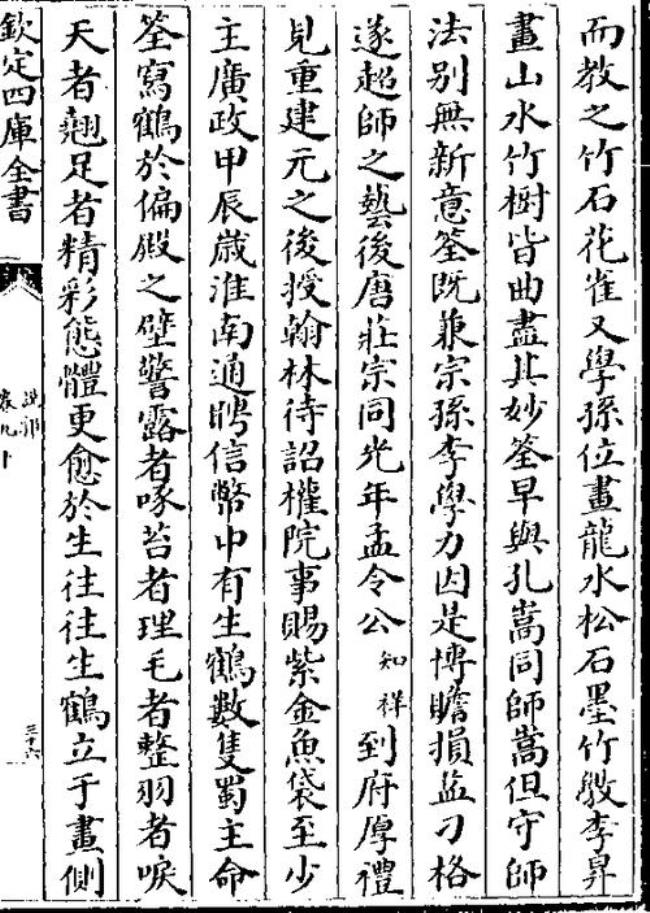 而教之竹石花雀又學孫位畫龍水松石墨竹斆李昇
畫山水竹樹皆曲盡其妙筌早與孔嵩同師嵩但守師
法别無新意筌既兼宗孫李學力因是博贍損益刁格
遂超師之藝後唐莊宗同光年孟令公知祥到府厚禮
見重建元之後授翰林待詔權院事賜紫金魚袋至少
主廣政甲辰歳淮南通聘信幣中有生鶴數隻蜀主命
筌寫鶴於偏殿之壁警露者啄苔者理毛者整羽者唳
天者翹足者精彩態體更愈於生往往生鶴立于畫側
欽定四庫全書
說郛
卷九十
三十六